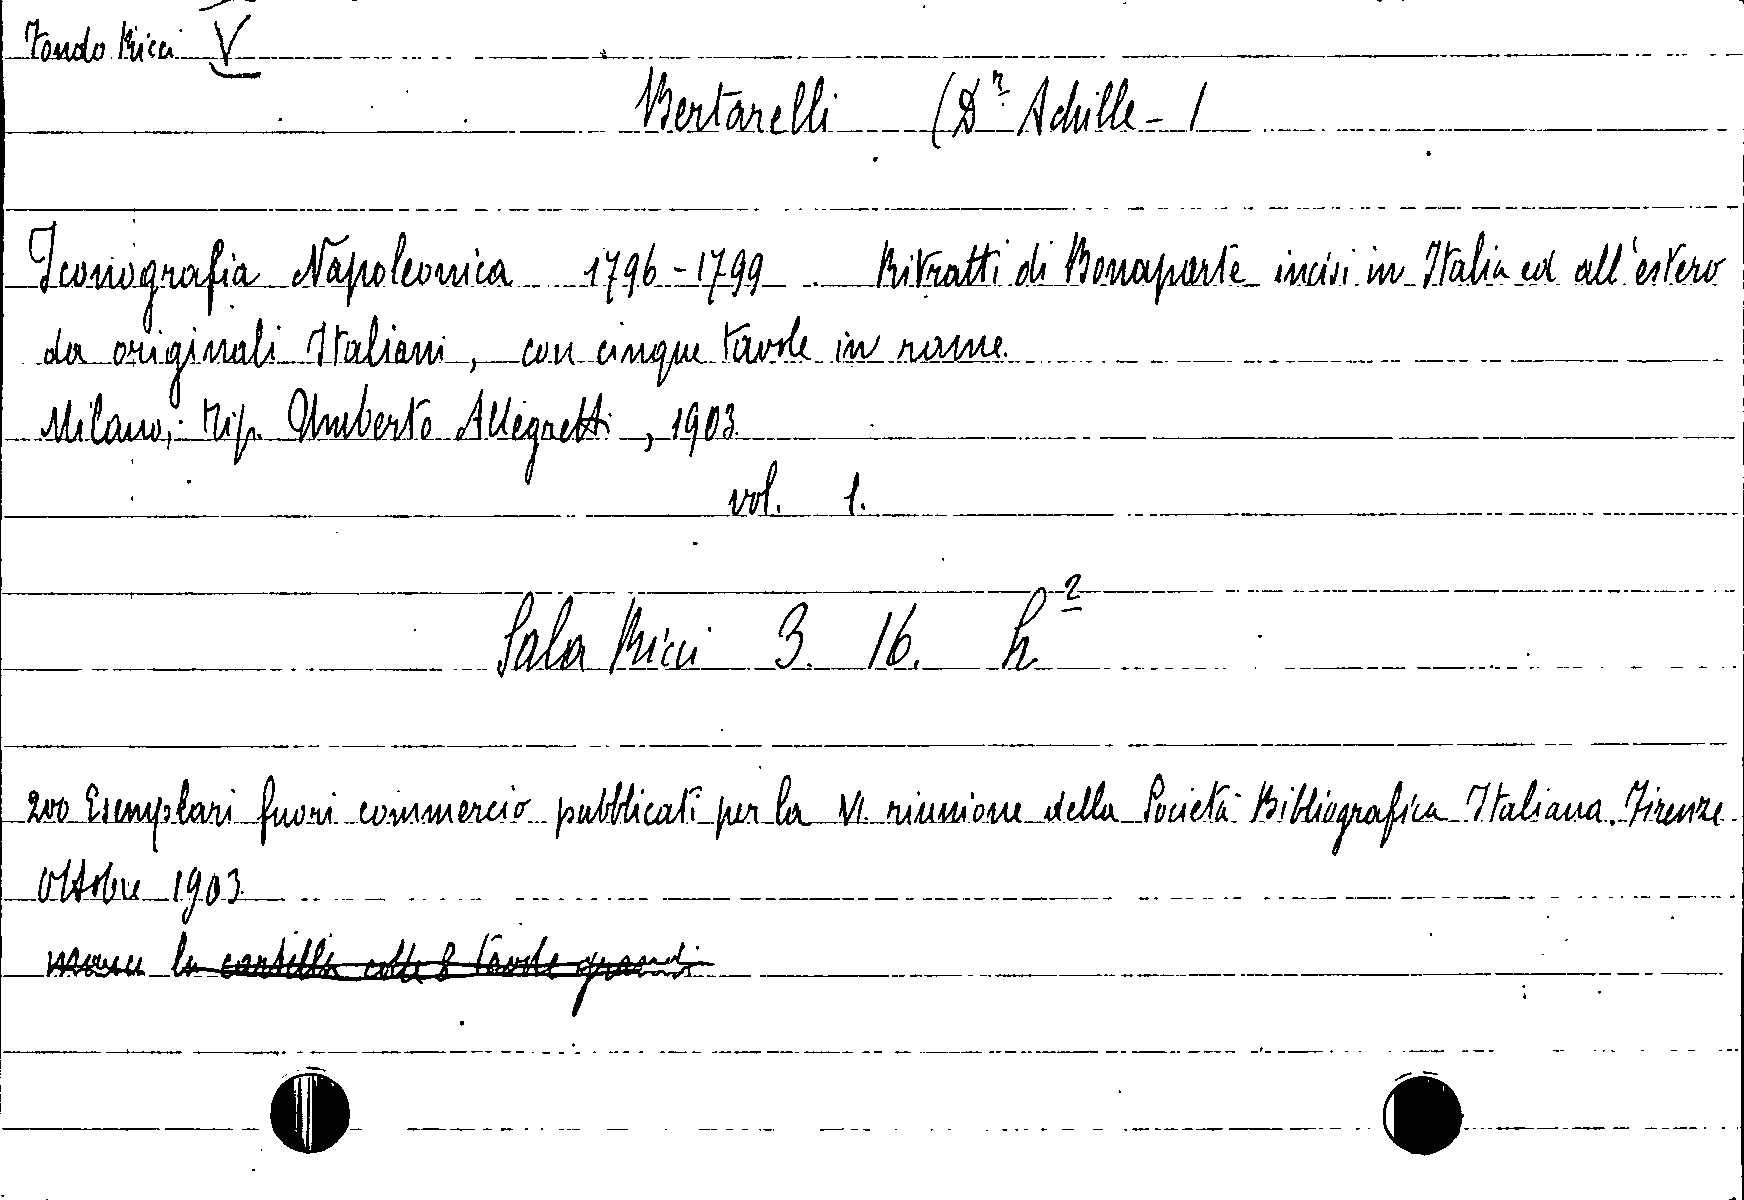 Fondo Ricci V
Bertarelli (Dr Achille - )
Iconografia Napoleonica 1796-1799. Ritratti di Bonaparte incisi in Italia ed all'estero
da originali Italiani, con cinque tavole in rame.
Milano, Tip. Umberto Allegretti, 1903
vol. 1.
Sala Ricci 3. 16. h.2
200 Esemplari fuori commercio pubblicati per la VI. riunione della Società Bibliografica Italiana. Firenze
Ottobre 1903.
manca la cartella colle 8 tavole grandi